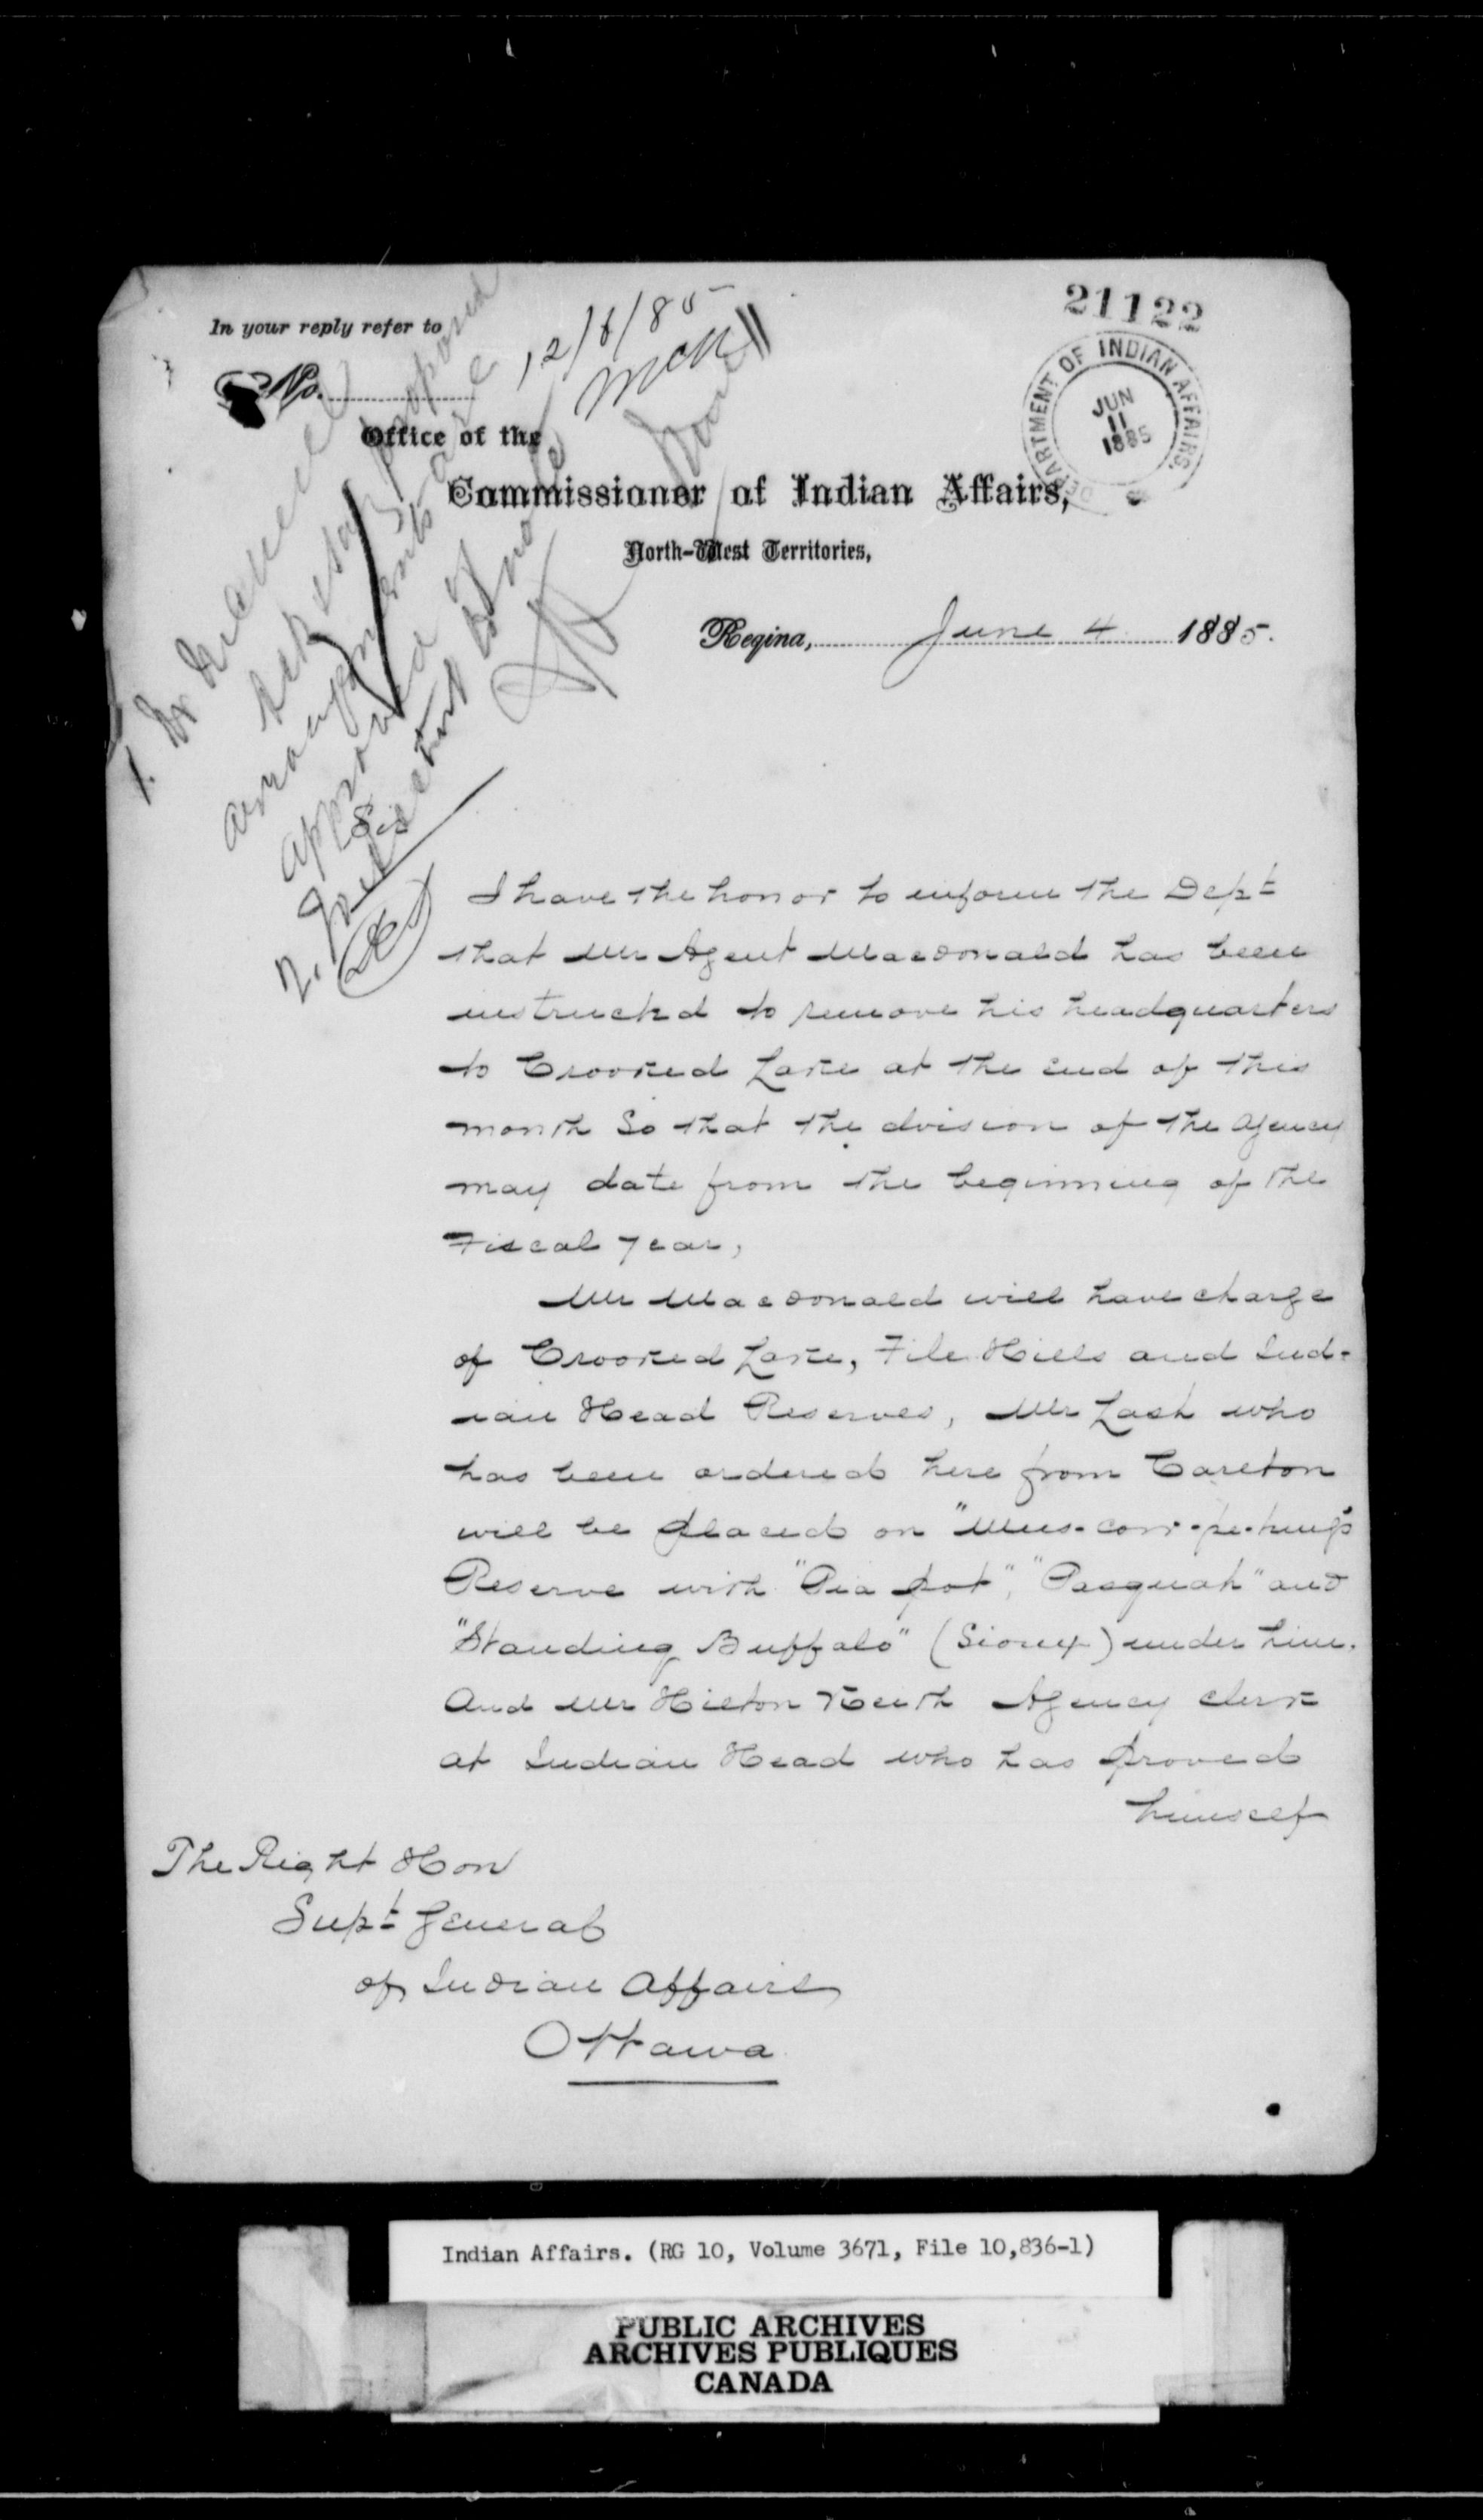 21122
DEPARTMENT OF INDIAN AFFAIRS.
JUN
11
1885
In your reply refer to
No.
12/6/85
Office of the
Commissioner of Indian Affairs,
North-West Territories,
Regina, June 4 1885.
proposed
arrangements are
approved of
Sir
I have the honor to inform the Dept
that Mr Agent Macdonald has been
instructed to remove his headquarters
to Crooked Lake at the end of this
month So that the division of the Agency
may date from the beginning of the
Fiscal year,
Mr Macdonald will have charge
of Crooked Lake, File Hills and Ind-
ian Head Reserves, Mr Lash who
has been ordered here from Carlton
will be placed on "Mus-cow-pe-tung's
Reserve with "Pia pot", "Pasquah" and
"Standing Buffalo" (Sioux) under him.
And Mr Hilton Keith Agency clerk
at Indian Head who has proved
himself
The Right Hon
Supt General
of Indian Affairs
Ottawa
Indian Affairs. (RG 10, Volume 3671, File 10,836-1)
PUBLIC ARCHIVES
ARCHIVES PUBLIQUES
CANADA